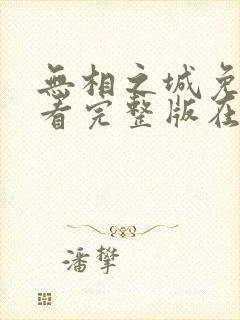 無相之城免
看完整版在
潘攀